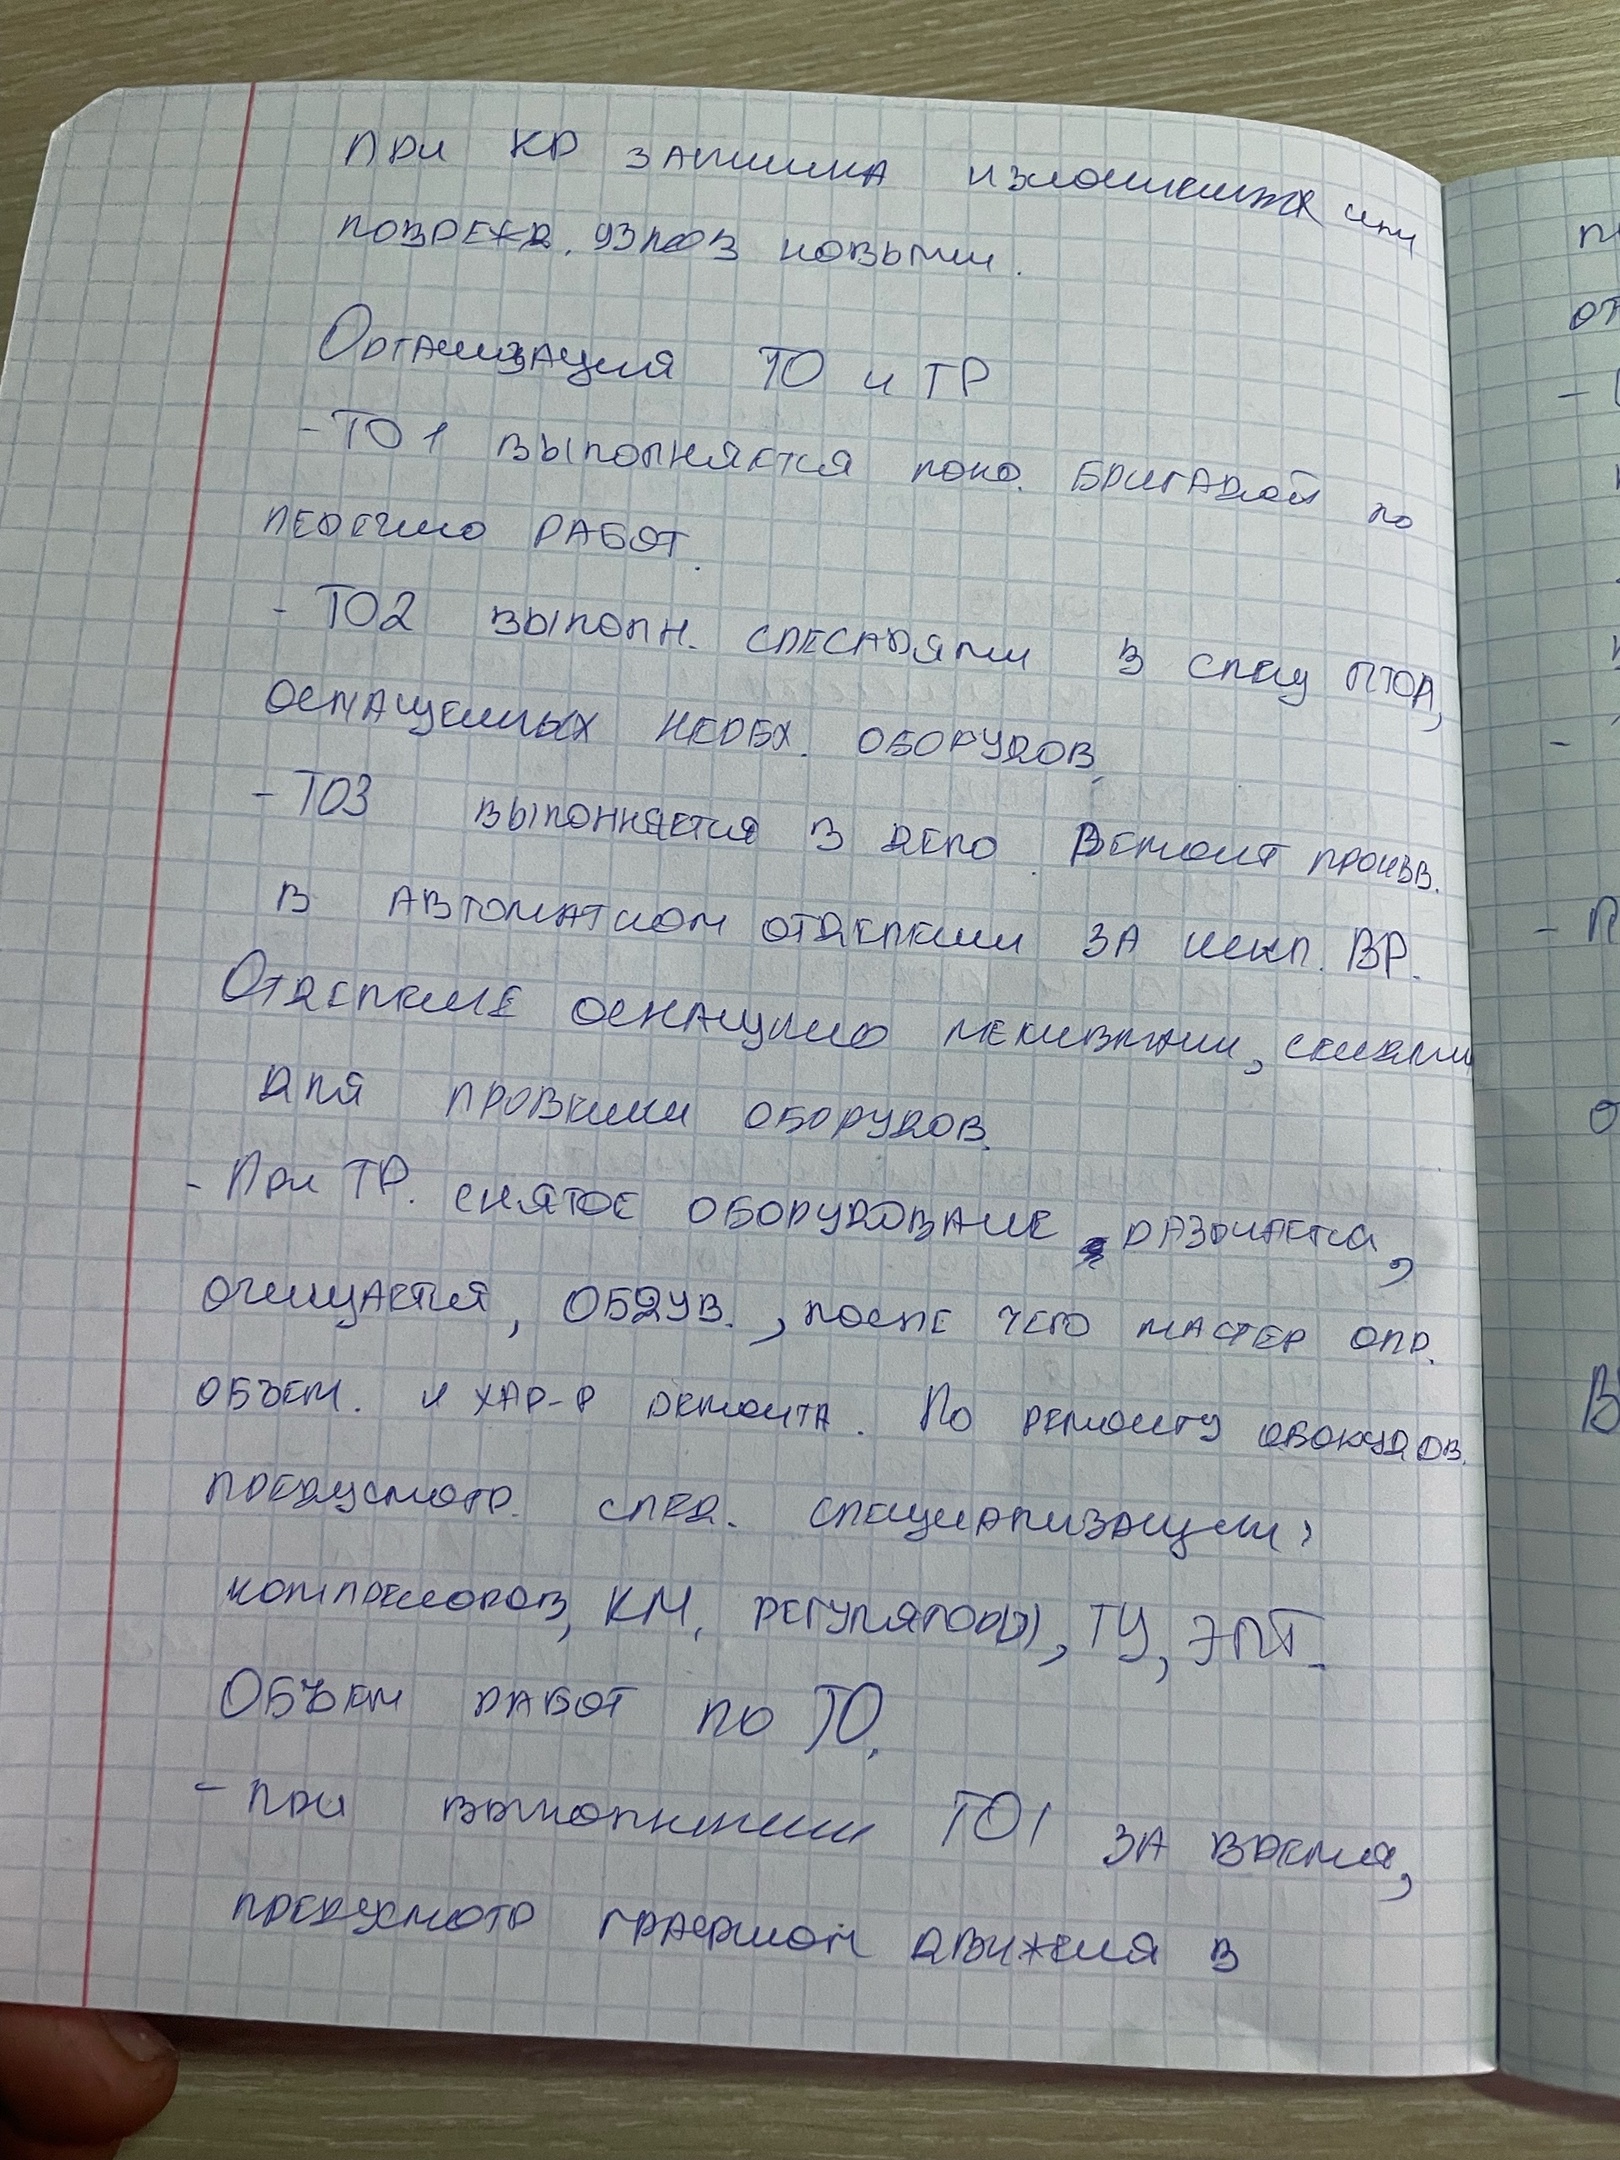 При КР замена износившихся или
повреж. узлов новыми.
Организация ТО и ТР
- ТО1 выполняется локо. бригадой по
перечню работ.
- ТО2 выполн. слесарями в спец ПТОЛ,
оснащенных необх. оборудов.
- ТО3 выполняется в депо. Ремонт произв.
в автоматном отделении за искл. ВР.
Отделение оснащено стендами
для проверки оборудов.
- При ТР. снятое оборудование разбирается,
очищается, обдув., после чего мастер опр.
объем. и хар-р ремонта. По ремонту оборудов.
предусмотр. след. специализации:
компрессоров, КМ, регулятор(ы), ТЦ, ЭПТ.
Объем работ по ТО.
- при выполнении ТО1 за время,
предусмотр графиком движения в